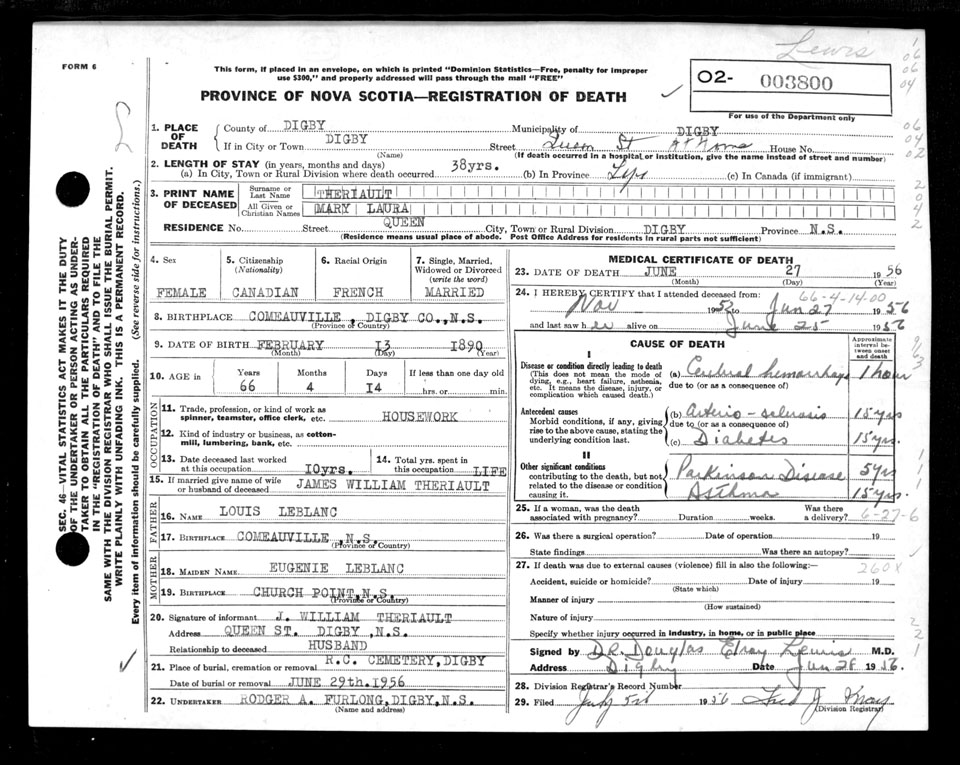 Lewis
FORM 6
This form, if placed in an envelope, on which is printed "Dominion Statistics—Free, penalty for improper
use $300," and properly addressed will pass through the mail "FREE"
O2- 003800
For use of the Department only
PROVINCE OF NOVA SCOTIA—REGISTRATION OF DEATH
06
06
04
06
04
02
2
0
4
2
SEC. 46—VITAL STATISTICS ACT MAKES IT THE DUTY
OF THE UNDERTAKER OR PERSON ACTING AS UNDER-
TAKER TO OBTAIN ALL THE PARTICULARS REQUIRED
IN THE "REGISTRATION OF DEATH" AND TO FILE THE
SAME WITH THE DIVISION REGISTRAR WHO SHALL ISSUE THE BURIAL PERMIT.
WRITE PLAINLY WITH UNFADING INK. THIS IS A PERMANENT RECORD.
Every item of information should be carefully supplied. (See reverse side for instructions.)
1. PLACE OF DEATH
County of DIGBY Municipality of DIGBY
If in City or Town DIGBY Street Queen St At Home House No.
(Name) (If death occurred in a hospital or institution, give the name instead of street and number)
2. LENGTH OF STAY (in years, months and days)
(a) In City, Town or Rural Division where death occurred 38yrs. (b) In Province (c) In Canada (if immigrant)
3. PRINT NAME OF DECEASED
Surname or Last Name THERIAULT
All Given or Christian Names MARY LAURA
RESIDENCE No. Street QUEEN City, Town or Rural Division DIGBY Province N.S.
(Residence means usual place of abode. Post Office Address for residents in rural parts not sufficient)
4. Sex
FEMALE
5. Citizenship (Nationality)
CANADIAN
6. Racial Origin
FRENCH
7. Single, Married, Widowed or Divorced (write the word)
MARRIED
8. BIRTHPLACE COMEAUVILLE , DIGBY CO., N.S.
(Province or Country)
9. DATE OF BIRTH FEBRUARY 13 1890
(Month) (Day) (Year)
10. AGE in Years Months Days If less than one day old
66 4 14 hrs. or min.
OCCUPATION
11. Trade, profession, or kind of work as
spinner, teamster, office clerk, etc. HOUSEWORK
12. Kind of industry or business, as cotton-
mill, lumbering, bank, etc.
13. Date deceased last worked
at this occupation 10yrs.
14. Total yrs. spent in
this occupation LIFE
15. If married give name of wife
or husband of deceased JAMES WILLIAM THERIAULT
FATHER
16. NAME LOUIS LEBLANC
17. BIRTHPLACE COMEAUVILLE ,N.S.
(Province or Country)
MOTHER
18. MAIDEN NAME EUGENIE LEBLANC
19. BIRTHPLACE CHURCH POINT,N.S.
(Province or Country)
20. Signature of informant J. WILLIAM THERIAULT
Address QUEEN ST. DIGBY ,N.S.
Relationship to deceased HUSBAND
21. Place of burial, cremation or removal R.C. CEMETERY,DIGBY
Date of burial or removal JUNE 29th.1956
22. UNDERTAKER RODGER A. FURLONG,DIGBY,N.S.
(Name and address)
MEDICAL CERTIFICATE OF DEATH
23. DATE OF DEATH JUNE 27 1956
(Month) (Day) (Year)
66-4-14-00
24. I HEREBY CERTIFY that I attended deceased from:
Nov 1952 to Jun 27 1956
and last saw her alive on June 25 1956
CAUSE OF DEATH
Approximate interval between onset and death
I
Disease or condition directly leading to death
(This does not mean the mode of
dying, e.g., heart failure, asthenia,
etc. It means the disease, injury, or
complication which caused death.)
(a) Cerebral hemorrhage 1 hour
due to (or as a consequence of)
Antecedent causes
Morbid conditions, if any, giving
rise to the above cause, stating the
underlying condition last.
(b) Arterio-sclerosis 15 yrs
due to (or as a consequence of)
(c) Diabetes 15 yrs.
II
Other significant conditions
contributing to the death, but not
related to the disease or condition
causing it.
Parkinson Disease 5 yrs
Asthma 15 yrs.
25. If a woman, was the death
associated with pregnancy? Duration weeks. Was there a delivery? 6-27-6
26. Was there a surgical operation? Date of operation 19
State findings Was there an autopsy?
27. If death was due to external causes (violence) fill in also the following: 260X
Accident, suicide or homicide? Date of injury 19
(State which)
Manner of injury
(How sustained)
Nature of injury
Specify whether injury occurred in industry, in home, or in public place
Signed by DR. Douglas Lewis M.D.
Address Digby Date Jun 28 1956.
28. Division Registrar's Record Number
29. Filed July 5th 1956 Fred J
(Division Registrar)